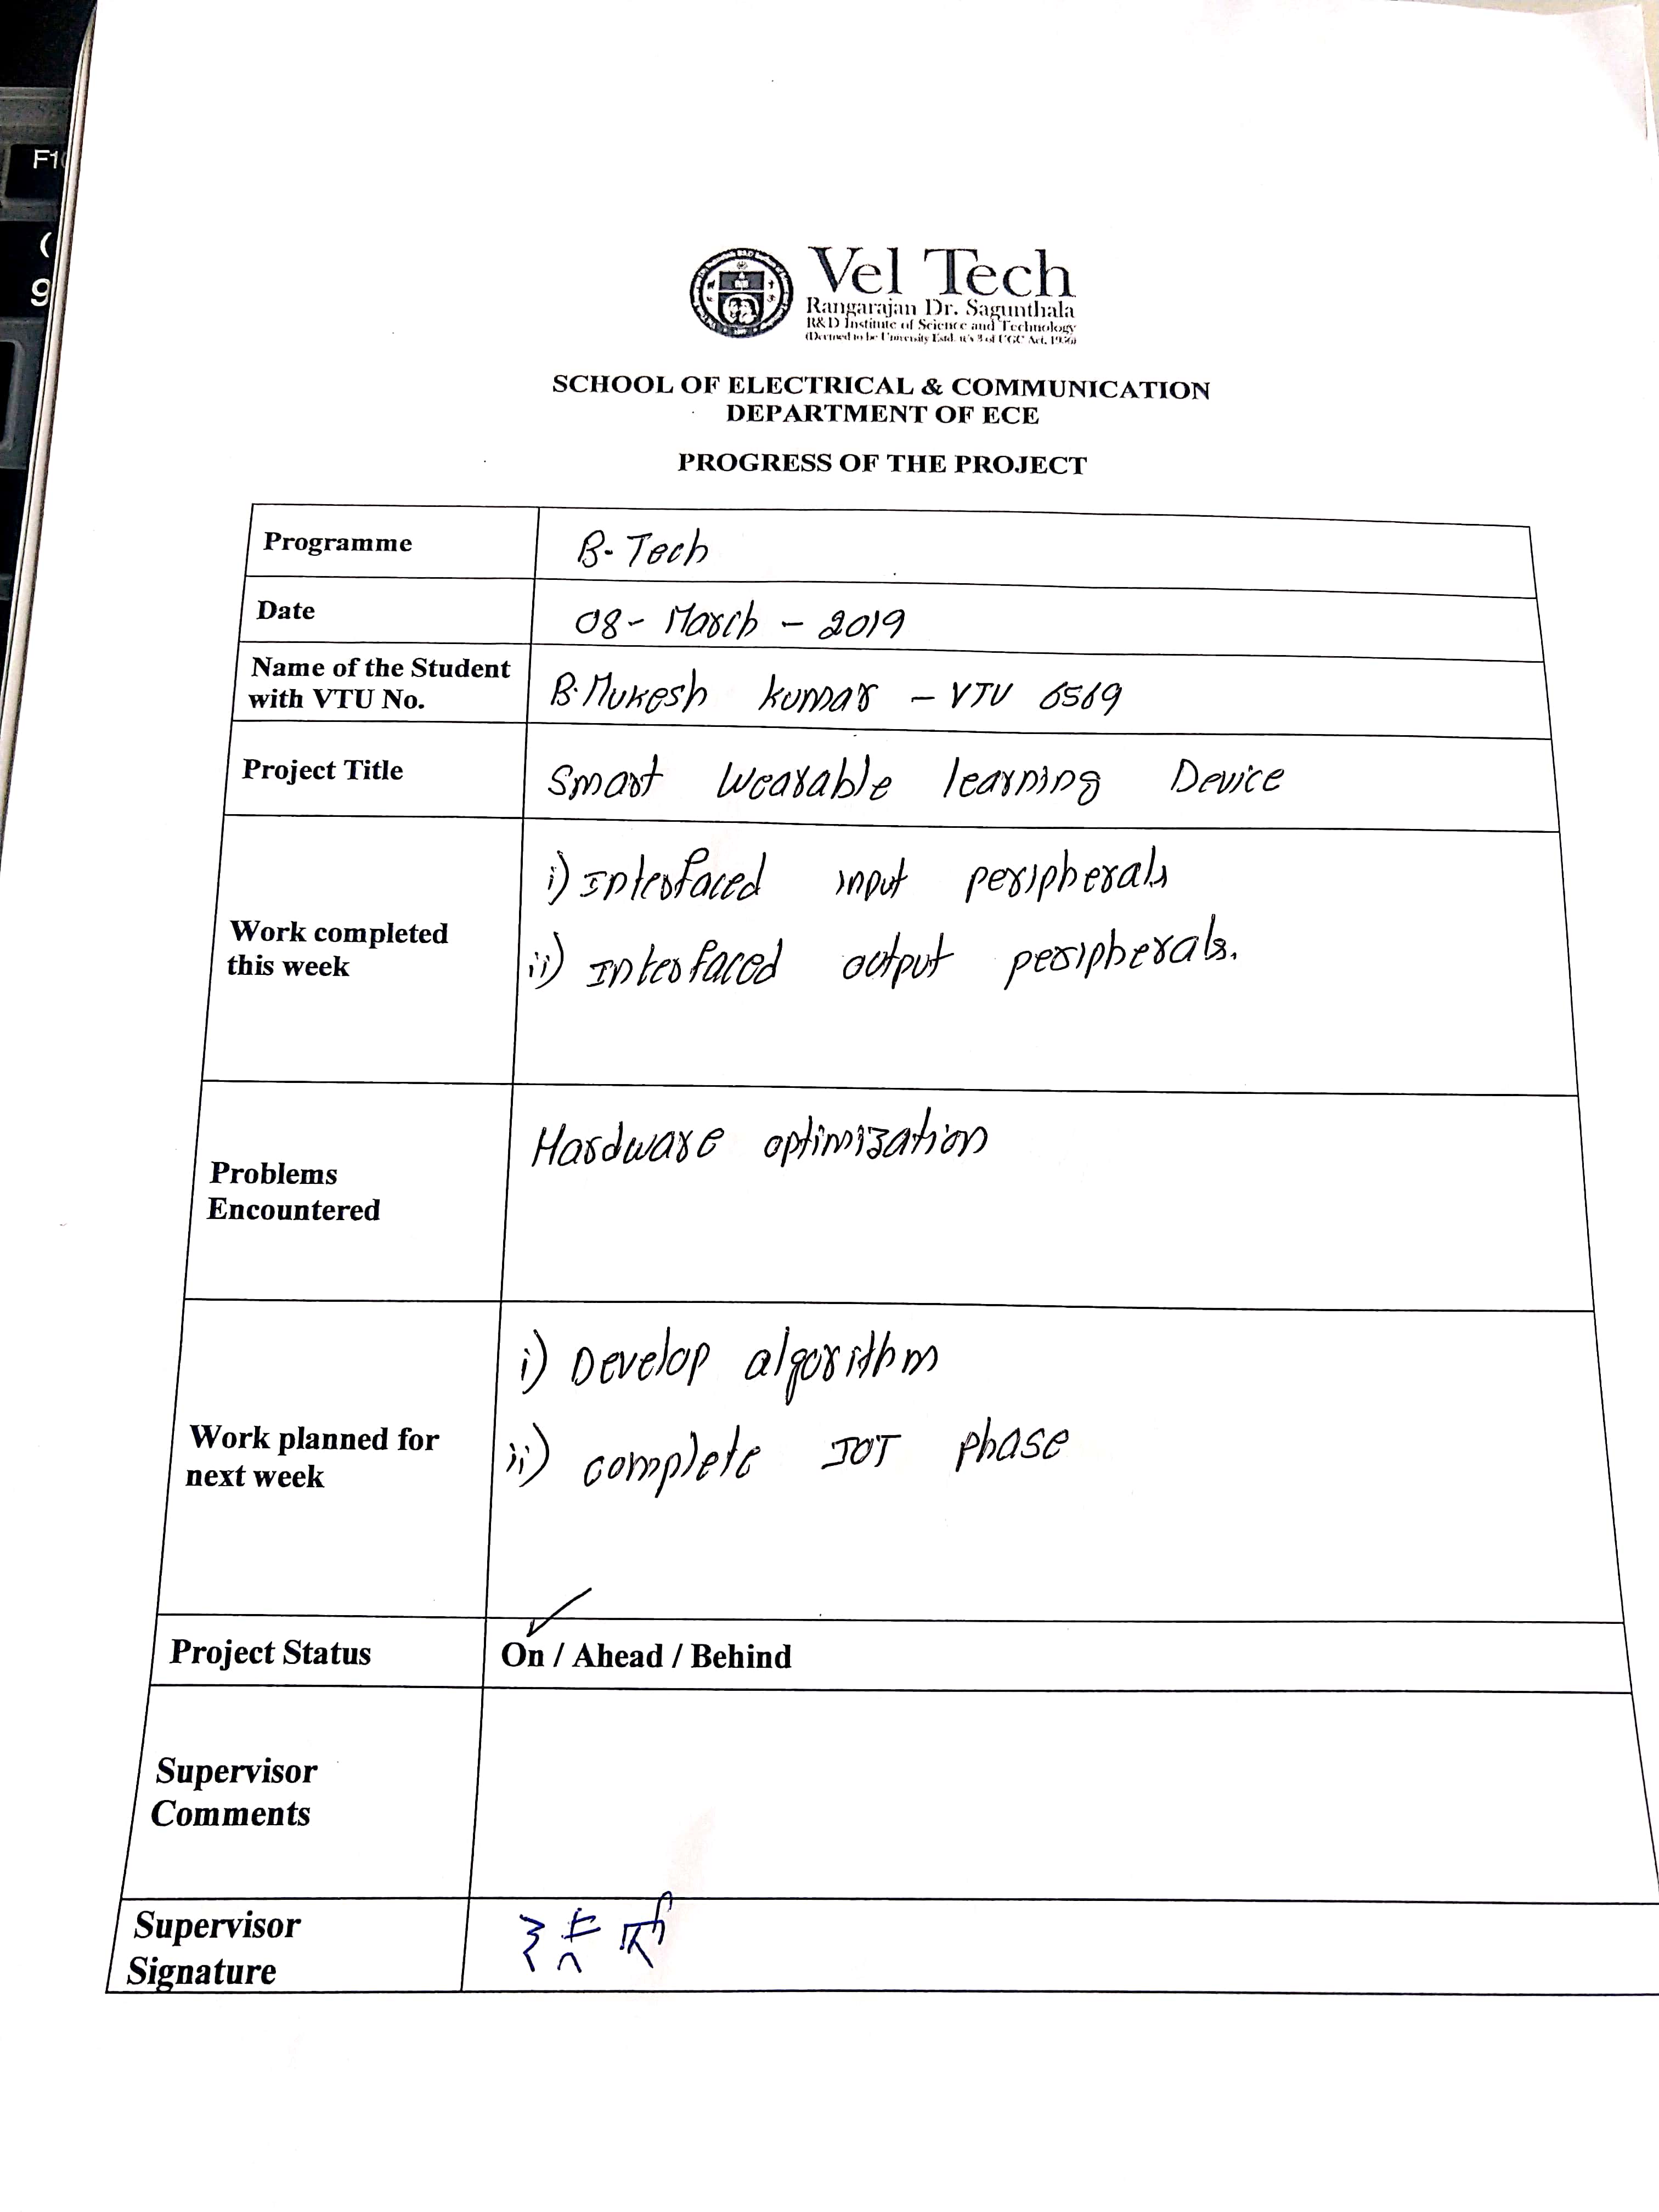 F1
(
9
Vel Tech
Rangarajan Dr. Sagunthala
R&D Institute of Science and Technology
(Deemed to be University Estd. u/s 3 of UGC Act, 1956)
SCHOOL OF ELECTRICAL & COMMUNICATION
DEPARTMENT OF ECE
PROGRESS OF THE PROJECT
Programme
B-Tech
Date
08- March - 2019
Name of the Student
with VTU No.
B.Mukesh kumar - VTU 6569
Project Title
Smart Wearable learning Device
Work completed
this week
i) Interfaced input peripherals
ii) Interfaced output peripherals.
Problems
Encountered
Hardware optimization
Work planned for
next week
i) Develop algorithm
ii) complete IOT phase
Project Status
On / Ahead / Behind
Supervisor
Comments
Supervisor
Signature